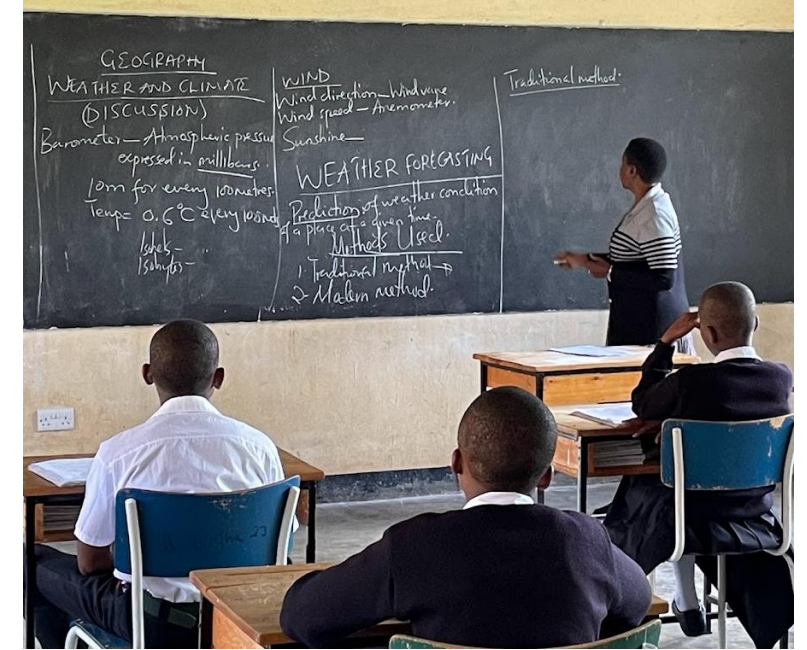 GEOGRAPHY
WEATHER AND CLIMATE
(DISCUSSION)
Barometer — Atmospheric pressure
expressed in millibars.
10m for every 100metres.
Temp = 0.6°C every 100m
Isohytes -
WIND
Wind direction — Windvane
Wind speed — Anemometer.
Sunshine —
WEATHER FORECASTING
Prediction of weather condition
of a place at a given time.
Methods Used.
1. Traditional method →
2. Modern method.
Traditional method.